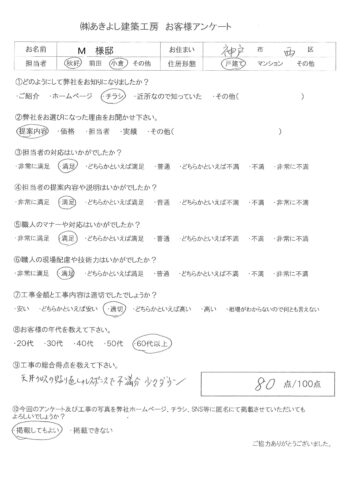 ㈱あきよし建築工房　お客様アンケート
お名前　M 様邸　お住まい　神戸 市 西 区
担当者　秋好　前田　小倉　その他　住居形態　戸建て　マンション　その他
①どのようにして弊社をお知りになりましたか？
・ご紹介　・ホームページ　・チラシ　・近所なので知っていた　・その他(　)
②弊社をお選びになった理由をお聞かせ下さい。
・提案内容　・価格　・担当者　・実績　・その他(　)
③担当者の対応はいかがでしたか？
・非常に満足　・満足　・どちらかといえば満足　・普通　・どちらかといえば不満　・不満　・非常に不満
④担当者の提案内容や説明はいかがでしたか？
・非常に満足　・満足　・どちらかといえば満足　・普通　・どちらかといえば不満　・不満　・非常に不満
⑤職人のマナーや対応はいかがでしたか？
・非常に満足　・満足　・どちらかといえば満足　・普通　・どちらかといえば不満　・不満　・非常に不満
⑥職人の現場配慮や技術力はいかがでしたか？
・非常に満足　・満足　・どちらかといえば満足　・普通　・どちらかといえば不満　・不満　・非常に不満
⑦工事金額と工事内容は適切でしたでしょうか？
・安い　・どちらかといえば安い　・適切　・どちらかといえば高い　・高い　・相場がわからないので何とも言えない
⑧お客様の年代を教えて下さい。
・20代　・30代　・40代　・50代　・60代以上
⑨工事の総合得点を教えて下さい。
天井クロスの貼り
80 点/100点
⑩今回のアンケート及び工事の写真を弊社ホームページ、チラシ、SNS等に匿名にて掲載させていただいても
よろしいでしょうか？
・掲載してもよい　・掲載できない
ご協力ありがとうございました。